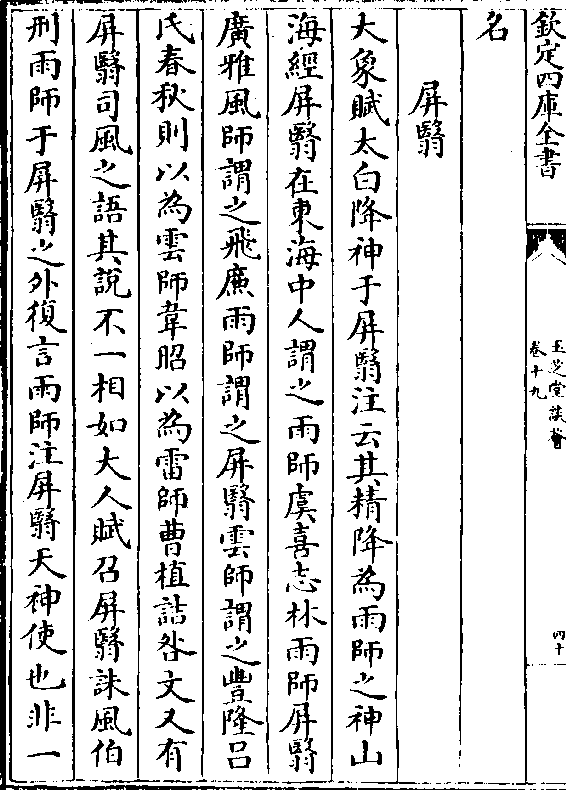 欽定四庫全書
玉芝堂談薈
卷十九
四十
名
屏翳
大象賦太白降神于屏翳注云其精降為雨師之神山
海經屏翳在東海中人謂之雨師虞喜志林雨師屏翳
廣雅風師謂之飛廉雨師謂之屏翳雲師謂之豐隆吕
氏春秋則以為雲師韋昭以為雷師曹植詰咎文又有
屏翳司風之語其說不一相如大人賦召屏翳誅風伯
刑雨師于屏翳之外復言雨師注屏翳天神使也非一